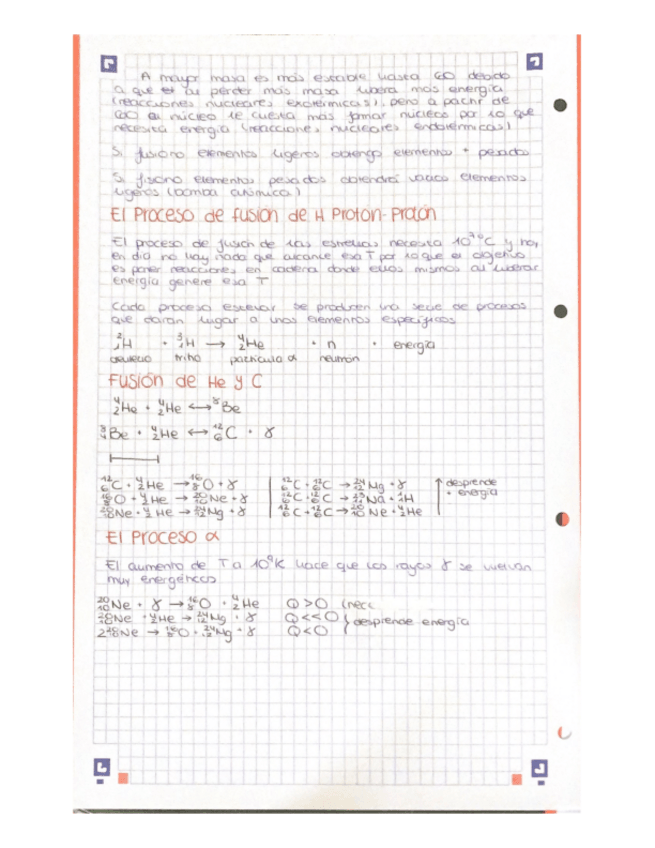 A mayor masa es más estable hasta 60 debido
a que al perder más masa libera más energía
(reacciones nucleares exotérmicas), pero a partir de
60 al núcleo le cuesta más formar núcleos por lo que
necesita energía (reacciones nucleares endotérmicas)
Si fusiono elementos ligeros obtengo elementos + pesados
Si fisiono elementos pesados obtendré varios elementos
ligeros (bomba atómica)
El Proceso de fusión de H Protón-Protón
El proceso de fusión de las estrellas necesita °C y hoy
en día no hay nada que alcance esa T por lo que el objetivo
es poner reacciones en cadena donde ellos mismos al liberar
energía genere esa T
Cada proceso estelar se producen una serie de procesos
que darán lugar a unos elementos específicos
²₁H + ³₁H → ⁴₂He + n + energía
deuterio tritio partícula α neutrón
Fusión de He y C
⁴₂He + ⁴₂He ↔ ⁸Be
⁸₄Be + ⁴₂He ↔ ¹²₆C + γ
¹²₆C + ⁴₂He → ¹⁶₈O + γ | ¹²₆C + ¹²₆C → ²⁴₁₂Mg + γ ↑ desprende
¹⁶₈O + ⁴₂He → ²⁰₁₀Ne + γ | ¹²₆C + ¹²₆C → ²³₁₁Na + ¹₁H + energía
²⁰₁₀Ne + ⁴₂He → ²⁴₁₂Mg + γ | ¹²₆C + ¹²₆C → ²⁰₁₀Ne + ⁴₂He
El Proceso α
El aumento de T a 10⁹K hace que los rayos γ se vuelvan
muy energéticos
²⁰₁₀Ne + γ → ¹⁶₈O + ⁴₂He Q>0 (nece
²⁰₁₀Ne + ⁴₂He → ²⁴₁₂Mg + γ Q<<0 } desprende energía
2 Ne → ¹⁶₈O + ²⁴₁₂Mg + γ Q<0